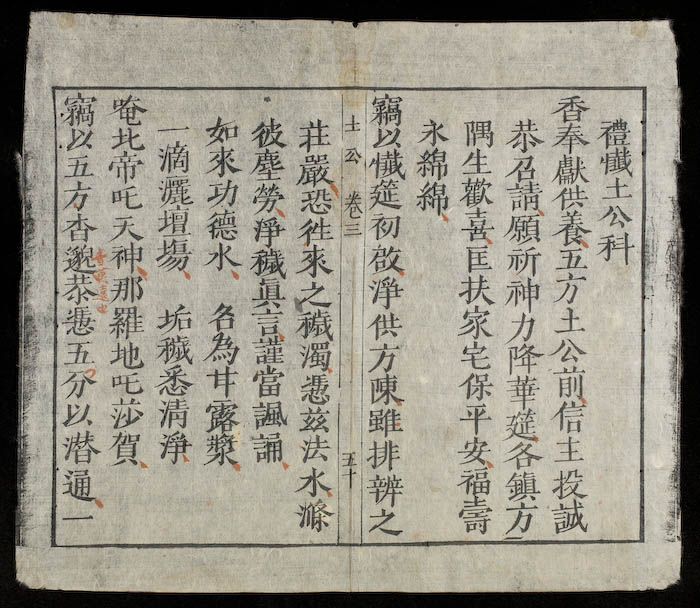 禮懺土公科
香奉獻供養五方土公前信主投誠
恭召請願祈神力降華筵各鎮方
隅生歡喜匡扶家宅保平安福壽
永綿綿
竊以懺筵初啟淨供方陳雖排辨之
土公 卷三 五十
莊嚴恐徃來之穢濁憑兹法水滌
彼塵勞淨穢眞言謹當諷誦
如來功德水 各為甘露漿
一滴灑壇塲 垢穢悉清淨
唵北帝吒天神那羅地吒莎賀
竊以五方杳邈恭憑五分以潜通一